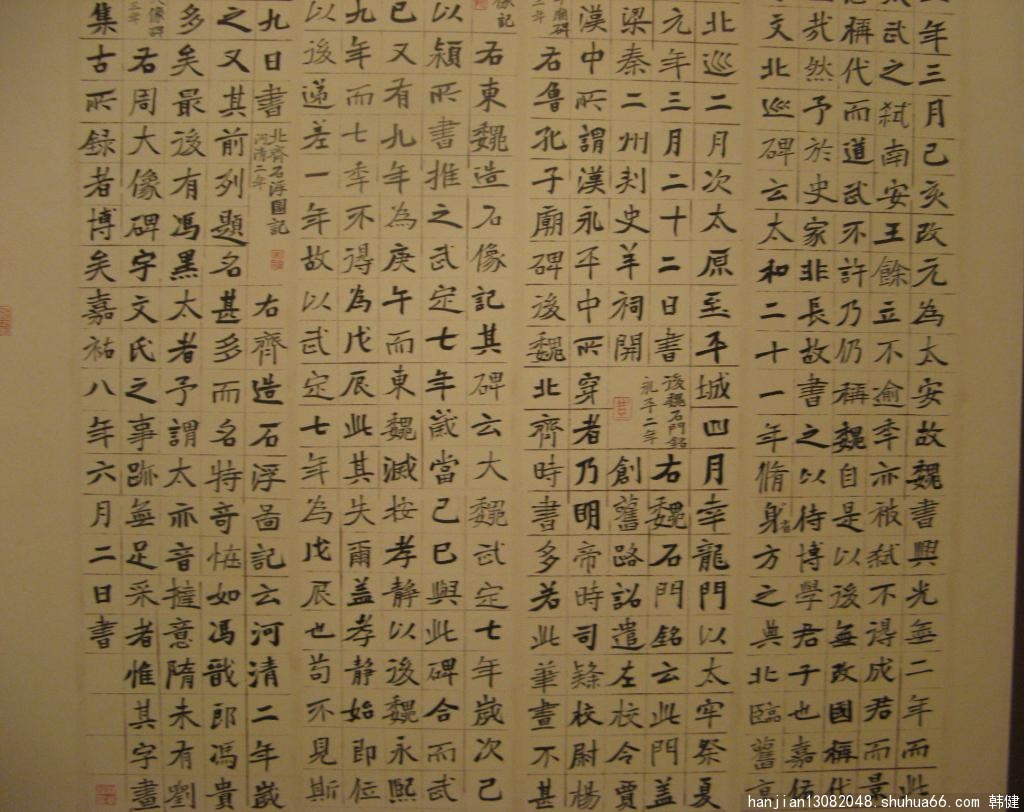 年三月己亥改元為太安故魏書興光無二年而此
武之弑南安王餘立不逾秊亦被弑不得成君而景
稱代而道武不許乃仍稱魏自是以後無改國稱代
哉然予於史家非長故書之以待博學君子也嘉
文北巡碑云太和二十一年脩身方之典北臨舊京
北巡二月次太原至平城四月幸龍門以太牢祭夏
元年三月二十二日書
後魏石門銘
永平二年
右魏石門銘云此門蓋
梁秦二州刾史羊祠開創舊路詔遣左校令賈
漢中所謂漢永平中所穿者乃明帝時司隸校尉楊
右魯孔子廟碑後魏北齊時書多若此筆畫不甚
像記
右東魏造石像記其碑云大魏武定七年歲次己
以頴所書推之武定七年歲當己巳與此碑合而武
已又有九年為庚午而東魏滅按孝靜以後魏永熙
九年而七秊不得為戊辰此其失爾蓋孝靜始即位
以後遞差一年故以武定七年為戊辰也苟不見斯
九日書
北齊石浮圖記
河清二年
右齊造石浮啚記云河清二年歲
之又其前列題名甚多而名特奇怪如馮戩郎馮貴
多矣最後有馮黑太者予謂太亦音撻意隋末有劉
右周大像碑宇文氏之事跡無足采者惟其字畫
集古所録者博矣嘉祐八年六月二日書
hanjian13082048.shuhua66.com/韩健